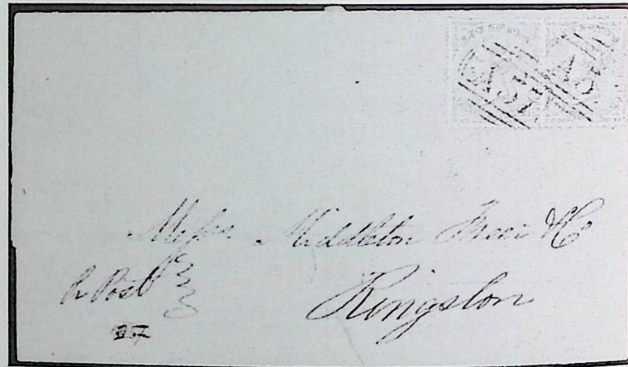 A57 A5
Messrs Middleton & Co
P Post
Kingston